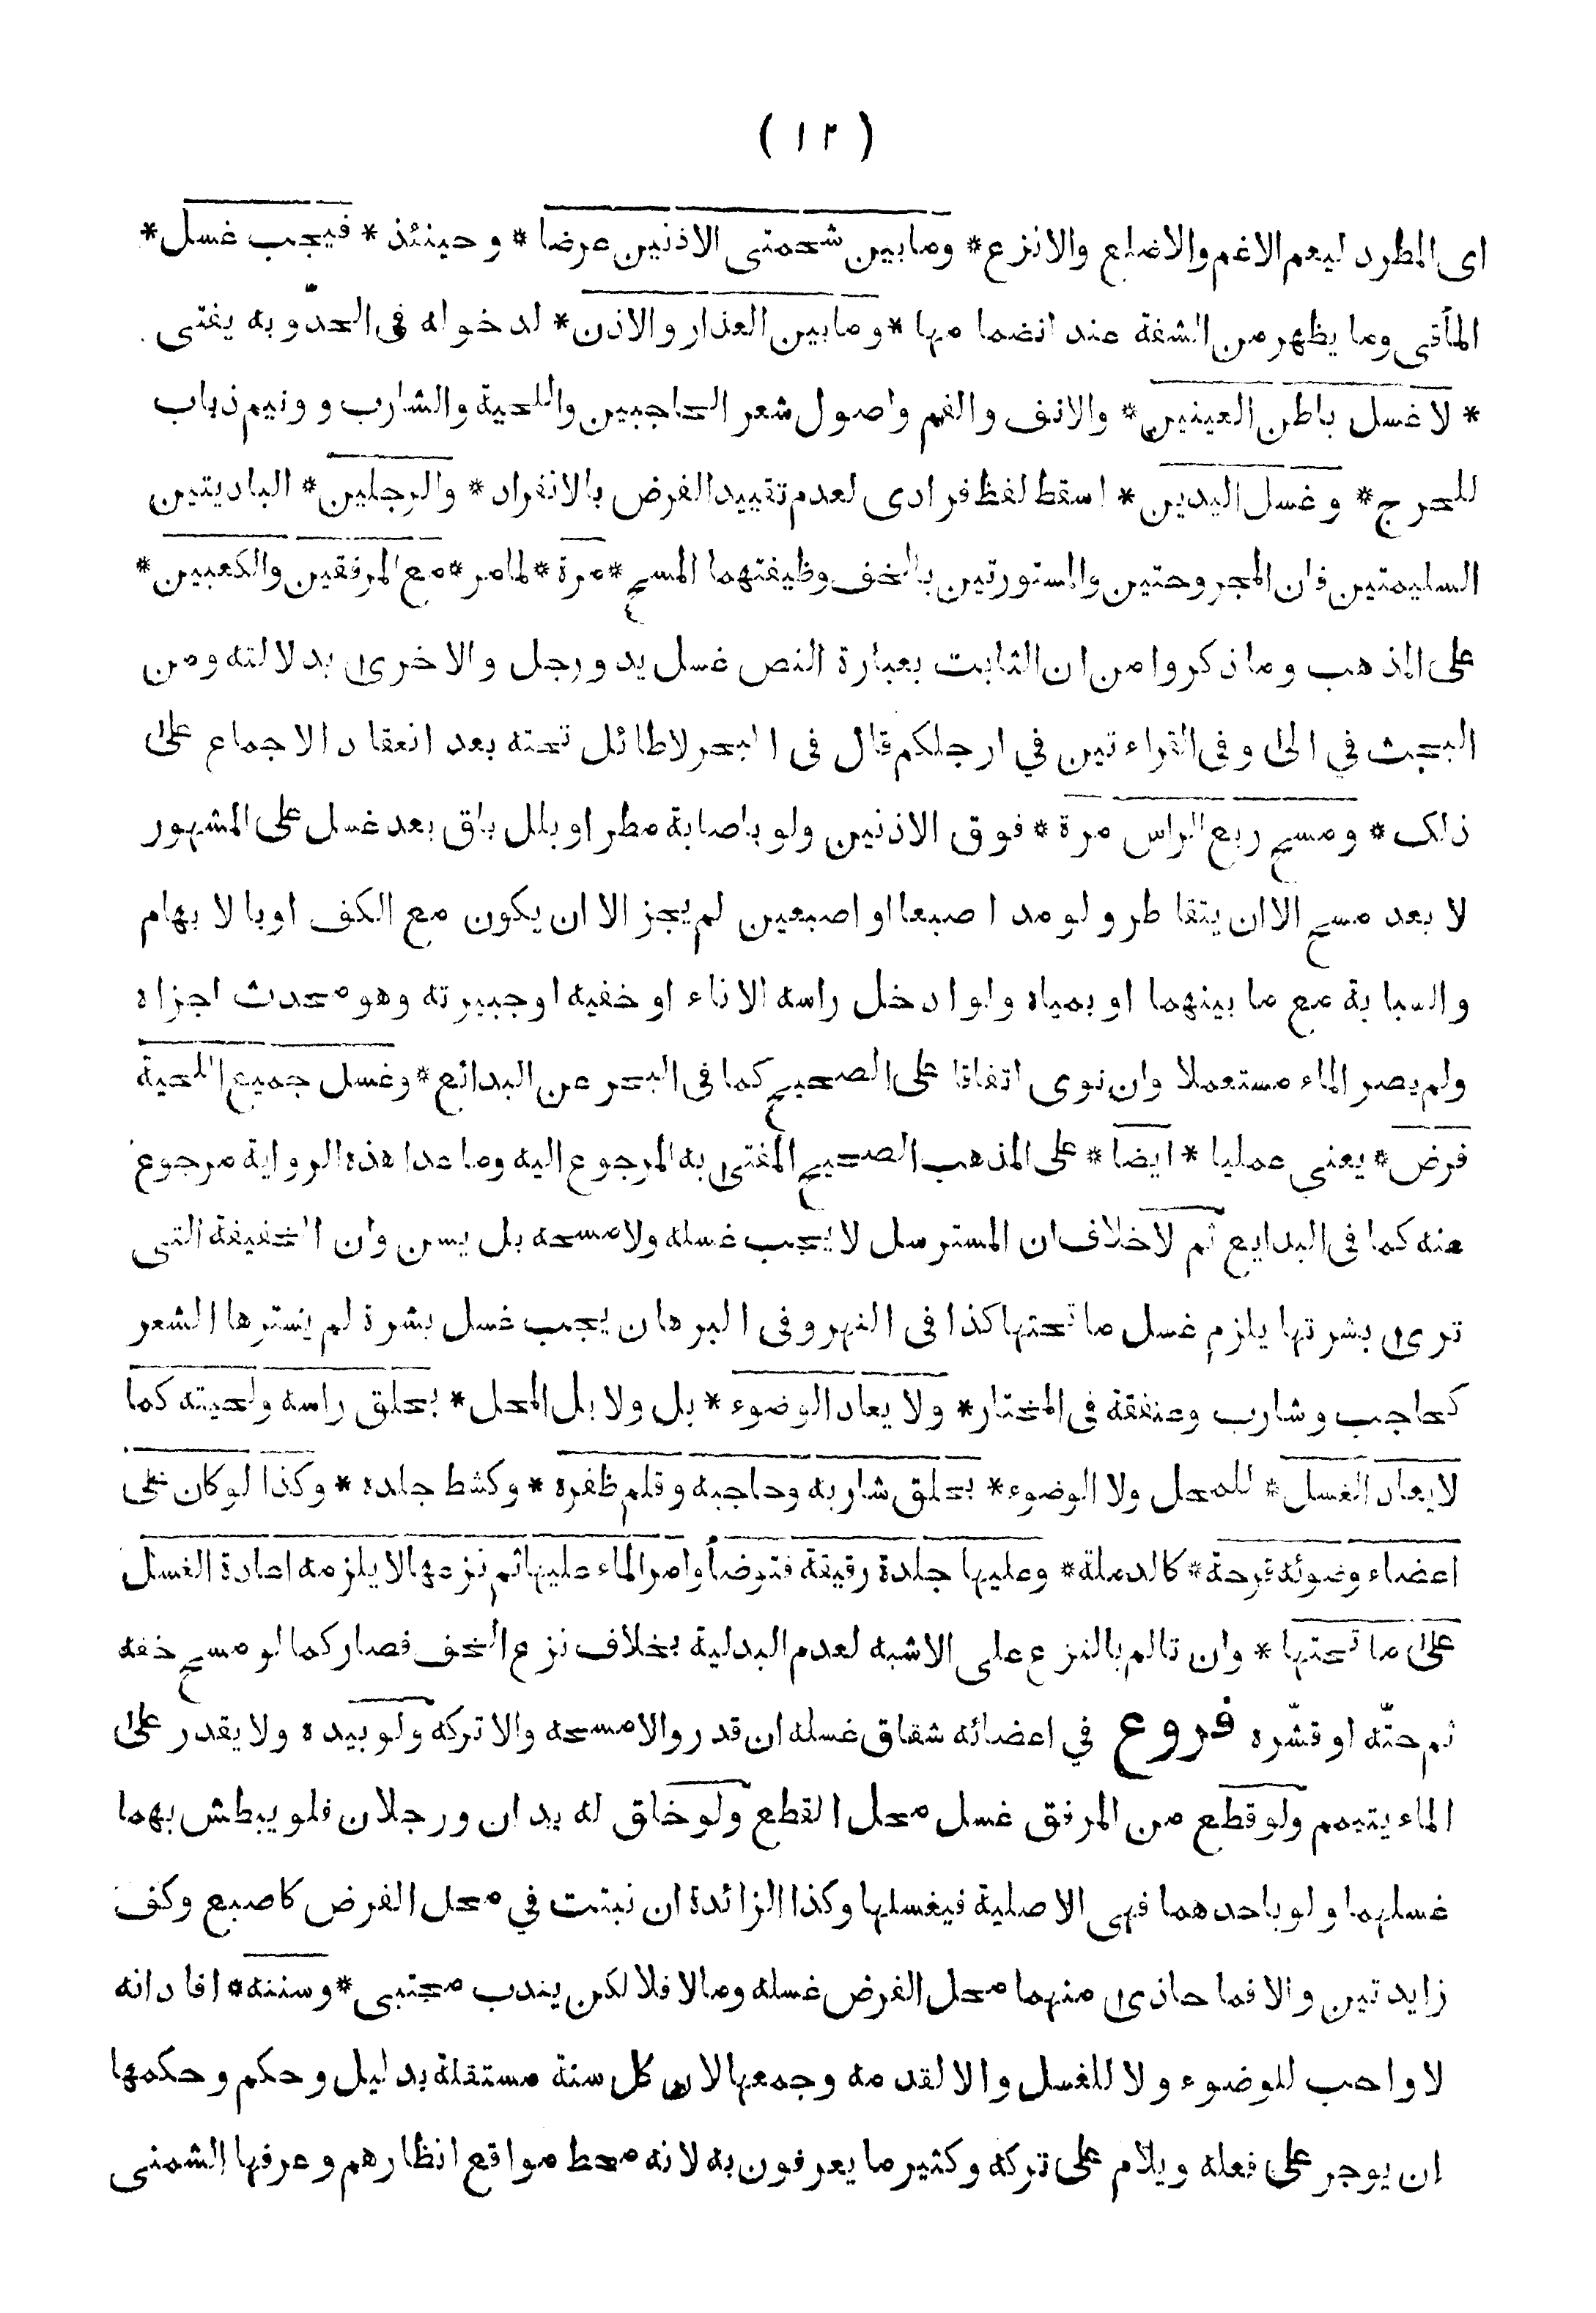 ( ١٢ )
اى المطرد ليعم الاغم والاضلع والانزع * وما بين شحمتى الاذنين عرضا * وحينئذ * فيجب غسل *
المأقى وما يظهر من الشفة عند انضما مها * وما بين العذار والاذن * لدخوله فى الحدّ وبه يفتى
* لا غسل باطن العينين * والانف والفم واصول شعر الحاجبين واللحية والشارب و ونيم ذباب
للحرج * وغسل اليدين * اسقط لفظ فرادى لعدم تقييد الفرض بالانفراد * والرجلين * الباديتين
السليمتين فان المجروحتين والمستورتين بالخف وظيفتهما المسح * مرة * لمامر * مع المرفقين والكعبين *
على المذهب وما ذكروا من ان الثابت بعبارة النص غسل يد ورجل والاخرى بدلالته ومن
البحث في الى وفى القراءتين في ارجلكم قال فى البحر لا طائل تحته بعد انعقاد الاجماع على
ذلك * ومسح ربع الراس مرة * فوق الاذنين ولو باصابة مطر او بلل باق بعد غسل على المشهور
لا بعد مسح الا ان يتقاطر ولو مد اصبعا او اصبعين لم يجز الا ان يكون مع الكف او بالابهام
والسبابة مع ما بينهما او بمياه ولو ادخل راسه الاناء او خفيه او جبيرته وهو محدث اجزاه
ولم يصر الماء مستعملا وان نوى اتفاقا على الصحيح كما فى البحر عن البدائع * وغسل جميع اللحية
فرض * يعنى عمليا * ايضا * على المذهب الصحيح المفتى به المرجوع اليه وما عدا هذه الرواية مرجوع
عنه كما فى البدايع ثم لا خلاف ان المسترسل لا يجب غسله ولا مسحه بل يسن وان الخفيفة التى
ترى بشرتها يلزم غسل ما تحتها كذا فى النهر وفى البرهان يجب غسل بشرة لم يسترها الشعر
كحاجب وشارب وعنفقة فى المختار * ولا يعاد الوضوء * بل ولا بل المحل * بحلق راسه ولحيته كما
لا يعاد الغسل * للمحل ولا الوضوء * بحلق شاربه وحاجبه وقلم ظفره * وكشط جلده * وكذا لو كان على
اعضاء وضوئه قرحة * كالدملة * وعليها جلدة رقيقة فتوضأ وامر الماء عليها ثم نزعها لا يلزمه اعادة الغسل
على ما تحتها * وان تالم بالنزع على الاشبه لعدم البدلية بخلاف نزع الخف فصار كما لو مسح خفه
ثم حتّه او قشّره فروع في اعضائه شقاق غسله ان قدر والا مسحه والا تركه ولو بيده ولا يقدر على
الماء يتيمم ولو قطع من المرفق غسل محل القطع ولو خلق له يدان ورجلان فلو يبطش بهما
غسلهما ولو باحدهما فهى الاصلية فيغسلها وكذا الزائدة ان نبتت في محل الفرض كاصبع وكف
زايدتين والا فما حاذى منهما محل الفرض غسله وما لا فلا لكن يندب مجتبى * وسننه * افاد انه
لا واجب للوضوء ولا للغسل والا لقدمه وجمعها لان كل سنة مستقلة بدليل وحكم وحكمها
ان يوجر على فعله ويلام على تركه وكثير ما يعرفون به لانه محط مواقع انظارهم وعرفها الشمنى